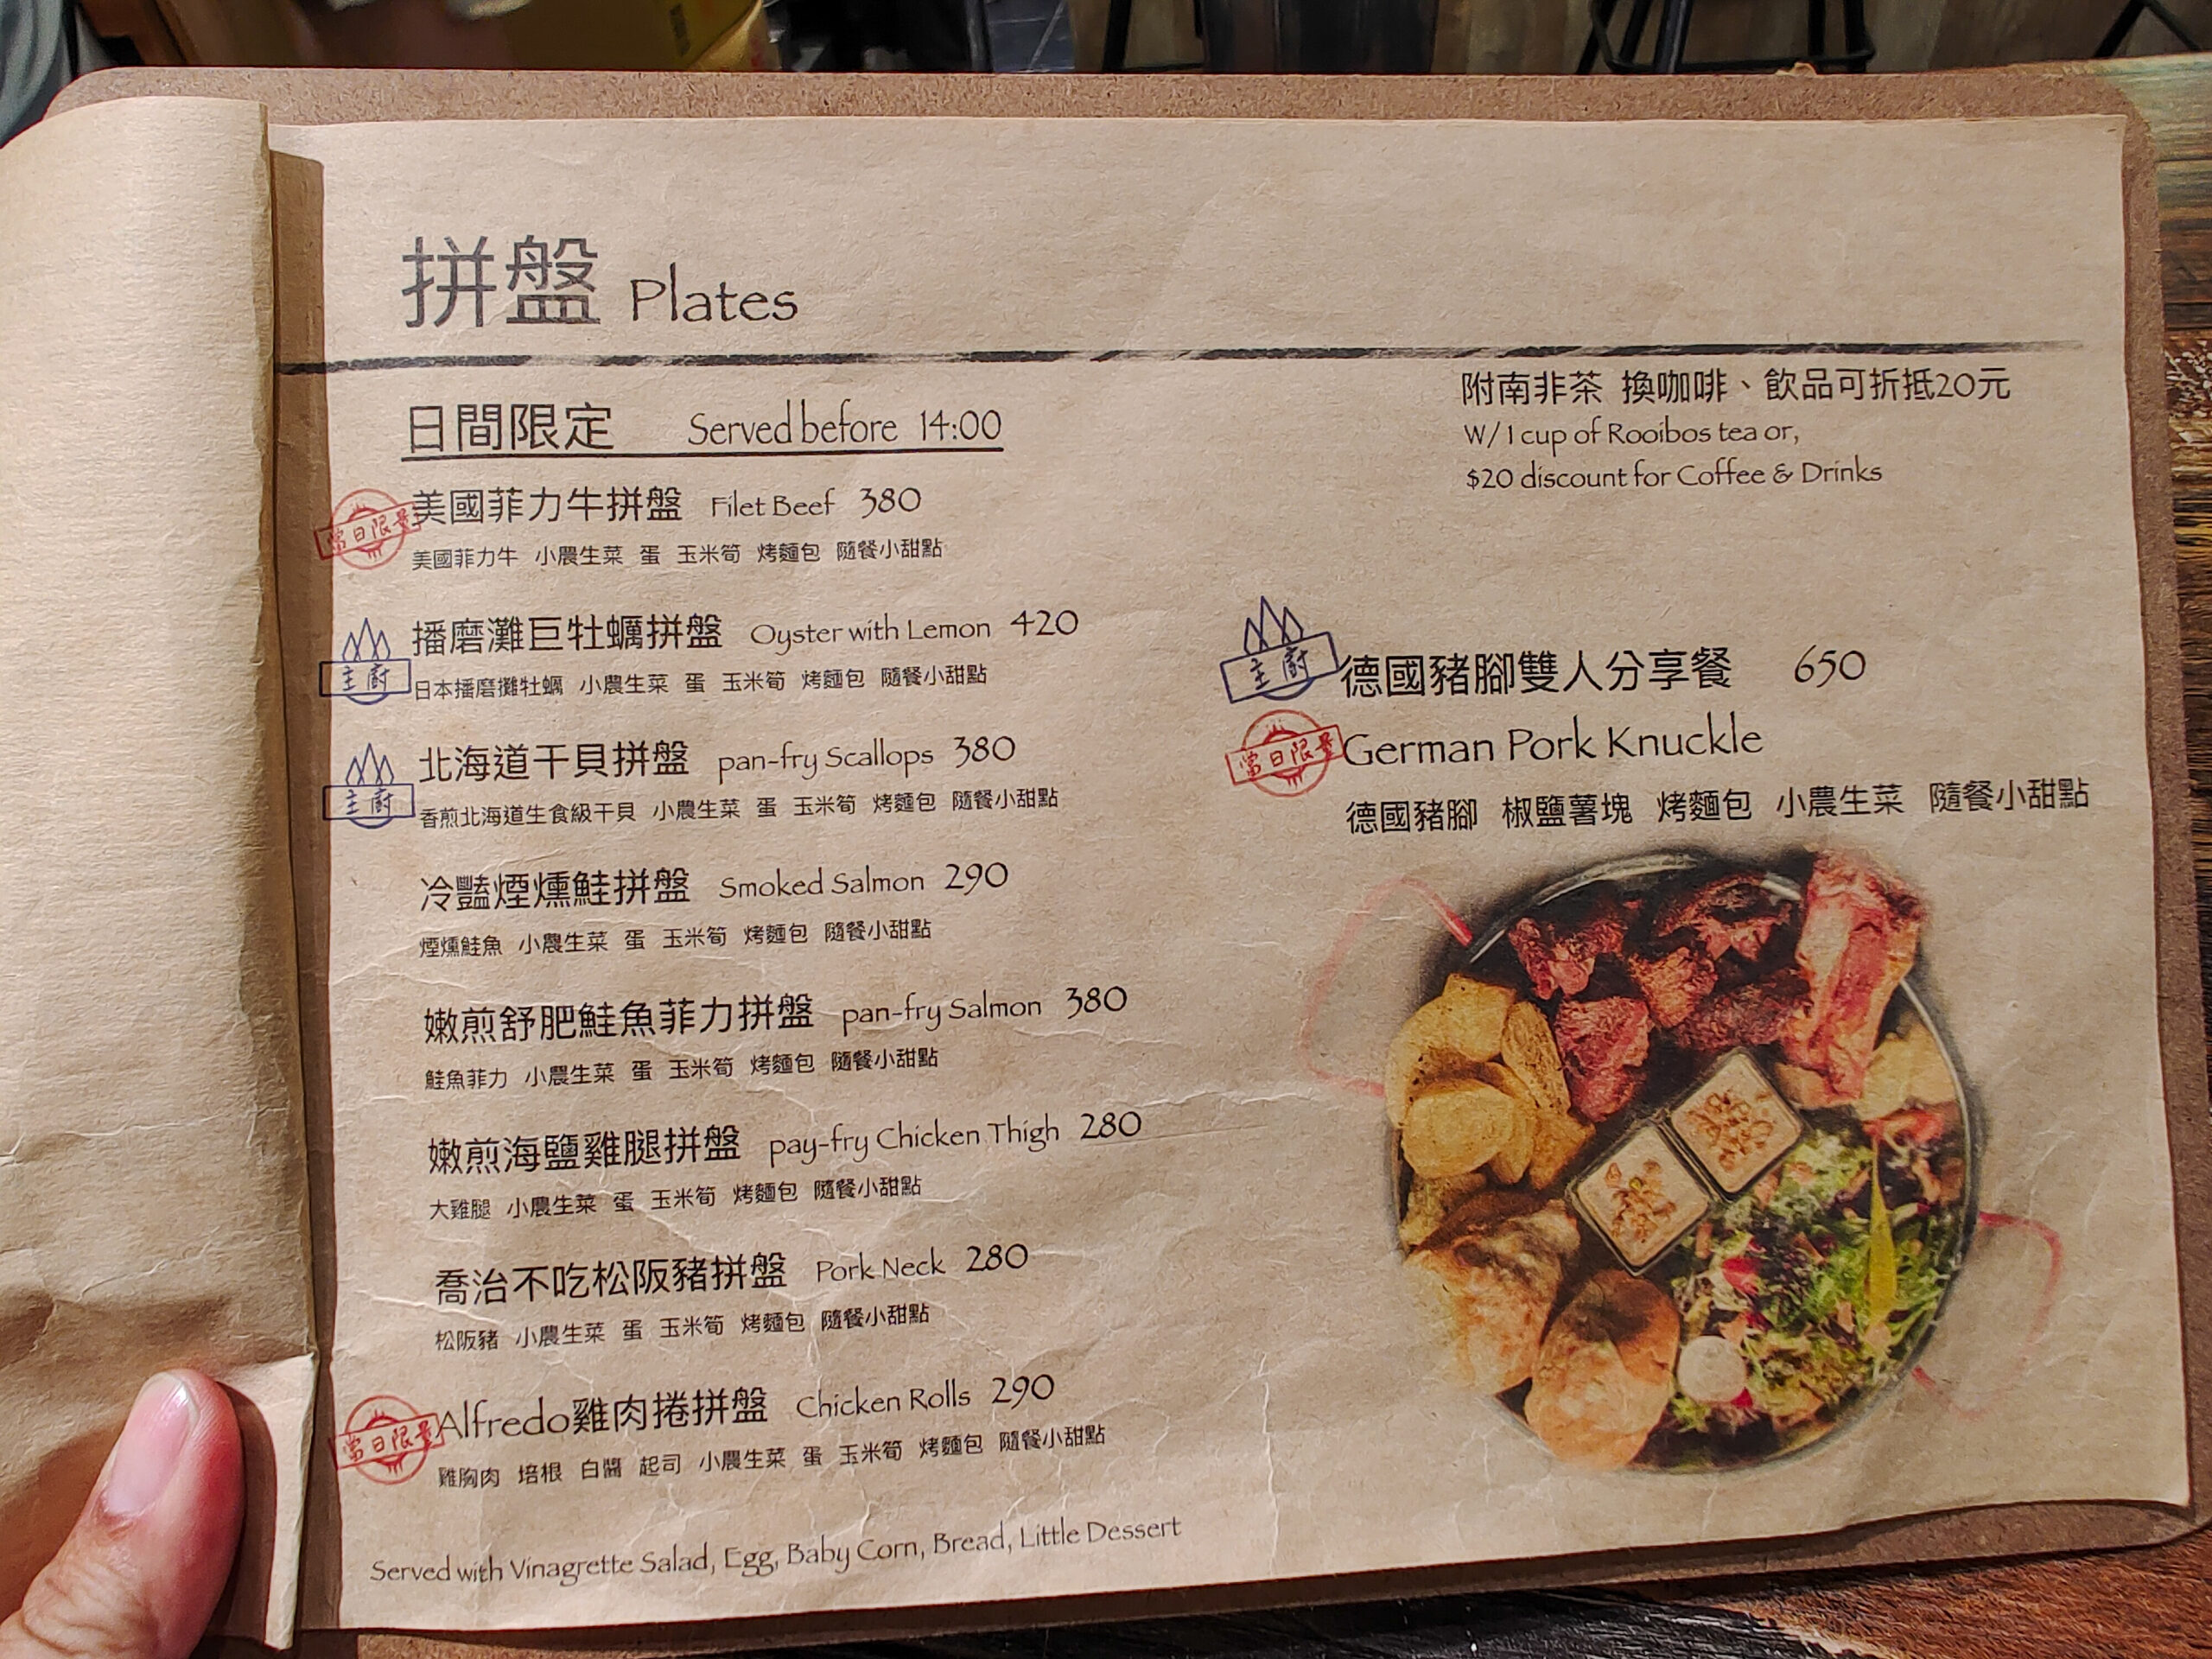 拼盤 Plates
日間限定 Served before 14:00
當日限量
美國菲力牛拼盤 Filet Beef 380
美國菲力牛 小農生菜 蛋 玉米筍 烤麵包 隨餐小甜點
主廚
播磨灘巨牡蠣拼盤 Oyster with Lemon 420
日本播磨攤牡蠣 小農生菜 蛋 玉米筍 烤麵包 隨餐小甜點
主廚
北海道干貝拼盤 pan-fry Scallops 380
香煎北海道生食級干貝 小農生菜 蛋 玉米筍 烤麵包 隨餐小甜點
冷豔煙燻鮭拼盤 Smoked Salmon 290
煙燻鮭魚 小農生菜 蛋 玉米筍 烤麵包 隨餐小甜點
嫩煎舒肥鮭魚菲力拼盤 pan-fry Salmon 380
鮭魚菲力 小農生菜 蛋 玉米筍 烤麵包 隨餐小甜點
嫩煎海鹽雞腿拼盤 pay-fry Chicken Thigh 280
大雞腿 小農生菜 蛋 玉米筍 烤麵包 隨餐小甜點
喬治不吃松阪豬拼盤 Pork Neck 280
松阪豬 小農生菜 蛋 玉米筍 烤麵包 隨餐小甜點
當日限量
Alfredo雞肉捲拼盤 Chicken Rolls 290
雞胸肉 培根 白醬 起司 小農生菜 蛋 玉米筍 烤麵包 隨餐小甜點
Served with Vinagrette Salad, Egg, Baby Corn, Bread, Little Dessert
附南非茶 換咖啡、飲品可折抵20元
W/1 cup of Rooibos tea or,
$20 discount for Coffee & Drinks
主廚
德國豬腳雙人分享餐 650
當日限量
German Pork Knuckle
德國豬腳 椒鹽薯塊 烤麵包 小農生菜 隨餐小甜點